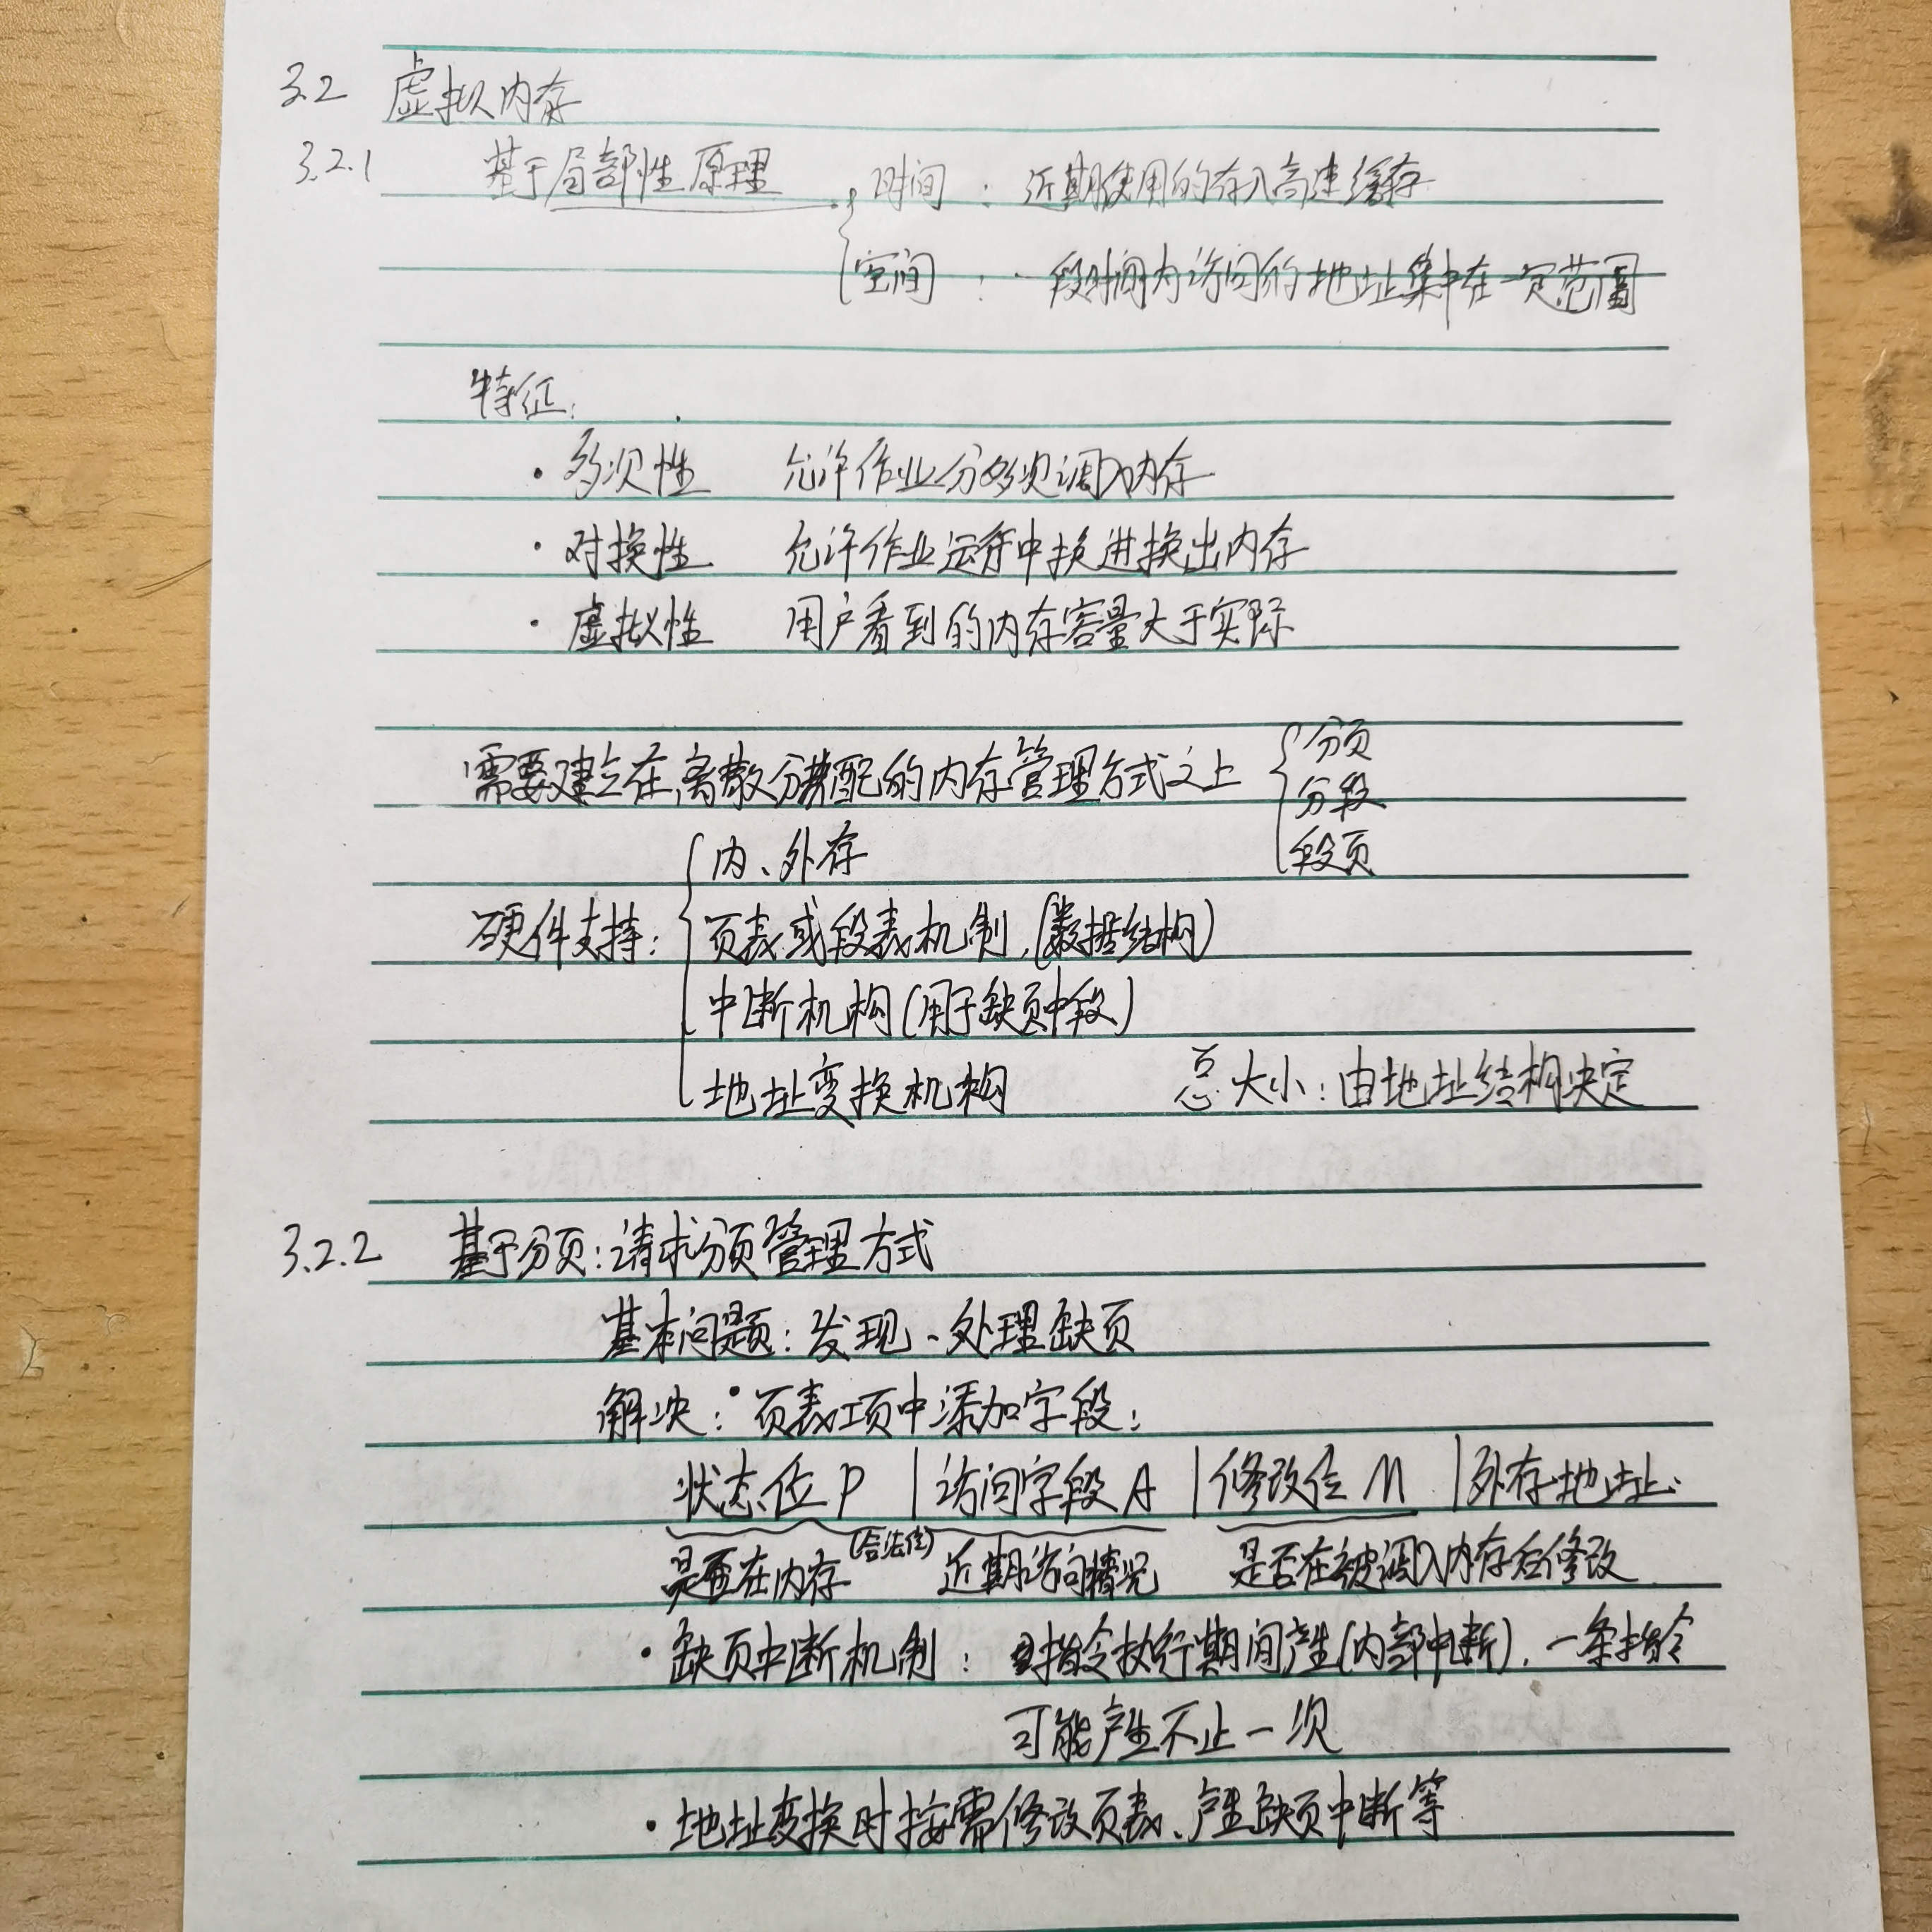 3.2 虚拟内存
3.2.1 基于局部性原理 时间：近期使用的存入高速缓存
空间：一段时间内访问的地址集中在一定范围
特征：
· 多次性 允许作业分多次调入内存
· 对换性 允许作业运行中换进换出内存
· 虚拟性 用户看到的内存容量大于实际
需要建立在离散分配的内存管理方式之上 分页
分段
段页
内、外存
硬件支持：页表或段表机制，(数据结构)
中断机构(用于缺页中段)
地址变换机构 总大小：由地址结构决定
3.2.2 基于分页：请求分页管理方式
基本问题：发现、处理缺页
解决：· 页表项中添加字段：
状态位P | 访问字段A | 修改位M | 外存地址
是否在内存(合法位) 近期访问情况 是否在被调入内存后修改
· 缺页中断机制：指令执行期间产生(内部中断)，一条指令
可能产生不止一次
· 地址变换时按需修改页表、产生缺页中断等